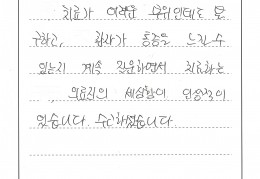 치료가 어려운 부위인데도 불
구하고, 환자가 통증을 느낄 수
있는지 계속 질문하면서 치료하는
, 의료진의 세심함이 인상적이
었습니다. 수고하셨습니다.